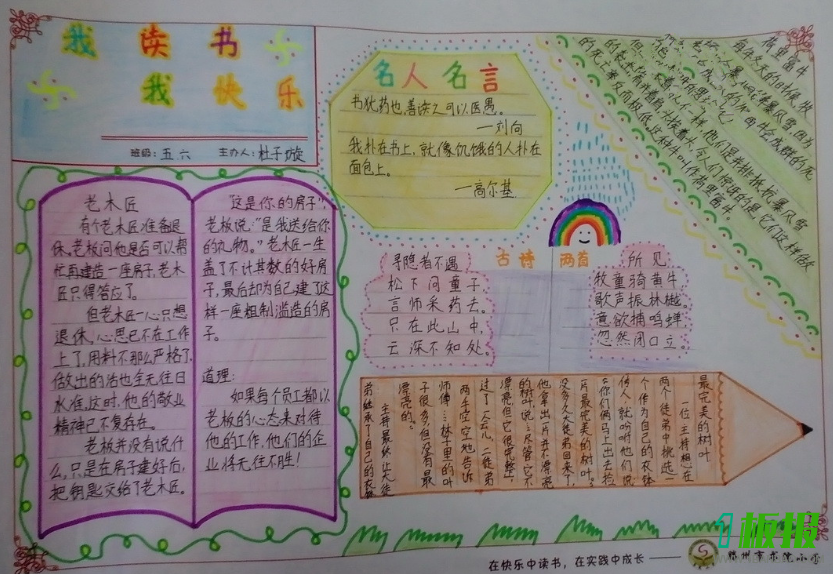 我读书
我快乐
班级：五六 主办人：杜子璇
名人名言
书犹药也，善读之可以医愚。
—刘向
我扑在书上，就像饥饿的人扑在
面包上。
—高尔基
老木匠
有个老木匠准备退
休。老板问他是否可以帮
忙再建造一座房子，老木
匠只得答应了。
但老木匠一心只想
退休，心思已不在工作
上了，用料不那么严格了，
做出的活也全无往日
水准，这时，他的敬业
精神已不复存在。
老板并没有说什
么，只是在房子建好后，
把钥匙交给了老木匠。
“这是你的房子”，
老板说：“是我送给你
的礼物。”老木匠一生
盖了不计其数的好房
子，最后却为自己建了这
样一座粗制滥造的房
子。
道理：
如果每个员工都以
老板的心态来对待
他的工作，他们的企
业将无往不胜！
古诗 两首
寻隐者不遇
松下问童子，
言师采药去。
只在此山中，
云深不知处。
所见
牧童骑黄牛，
歌声振林樾。
意欲捕鸣蝉，
忽然闭口立。
最完美的树叶
一位主持想在
两个徒弟中挑选一
个作为自己的衣钵
传人，就吩咐他们说
你们俩马上出去捡
片最完美的树叶。
没多久大徒弟回来了
他拿出片并不漂亮
的树叶说：尽管它不
漂亮但它很完整。
过了一会儿，二徒弟
两手空空地告诉
师傅：林子里的叶
子很多，但没有最
漂亮的。
主持最终让大徒
弟继承了自己的衣钵
在快乐中读书，在实践中成长
1板报